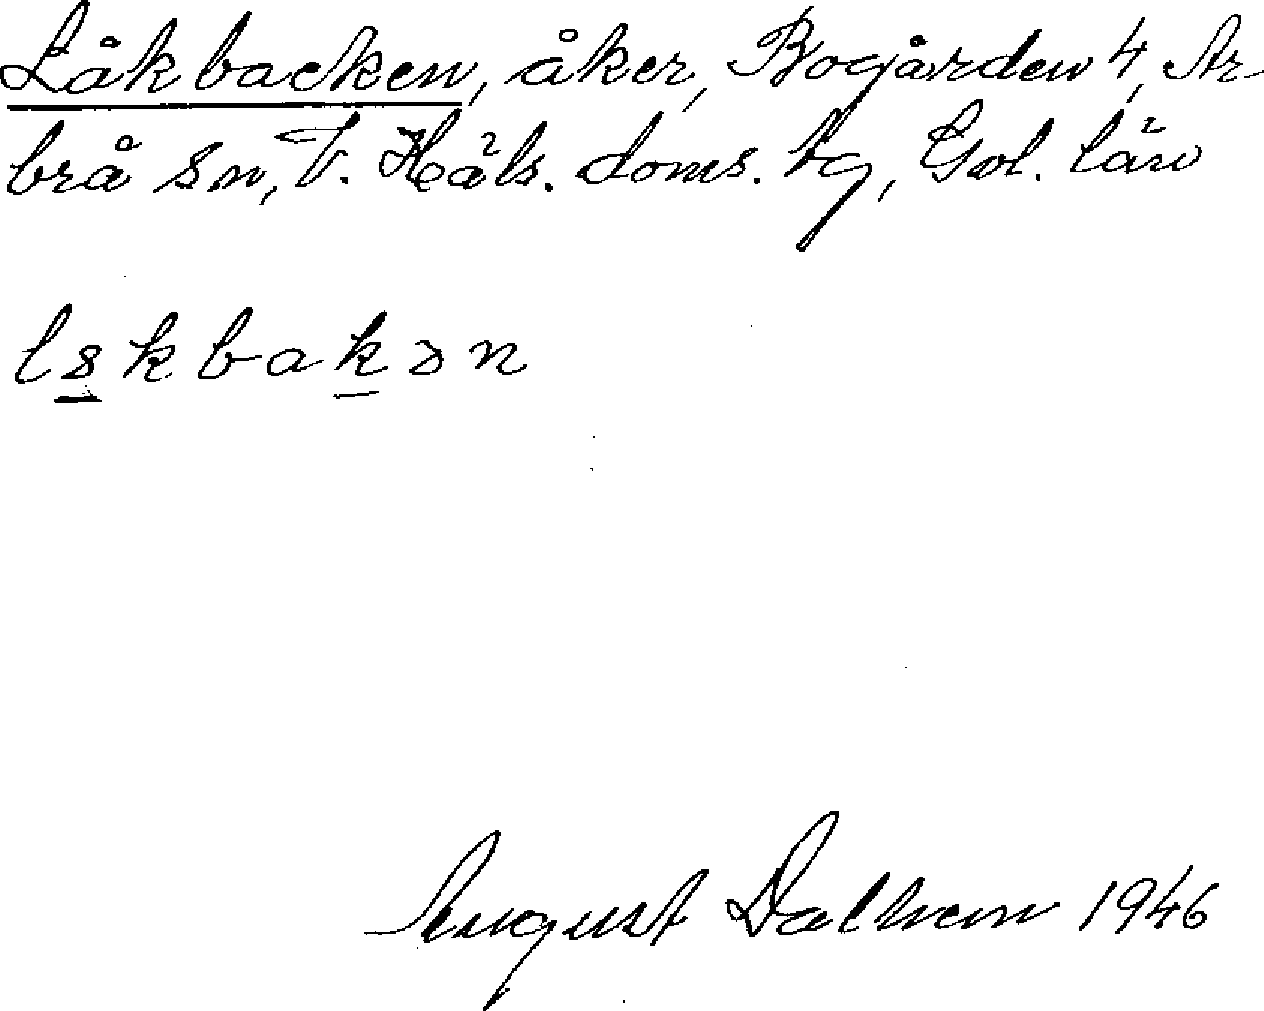 Låkbacken, åker, Bogården 4, Ar-
brå sn, V. Häls. doms. tg, Gol. län
lskbakən
August Dalhem 1946